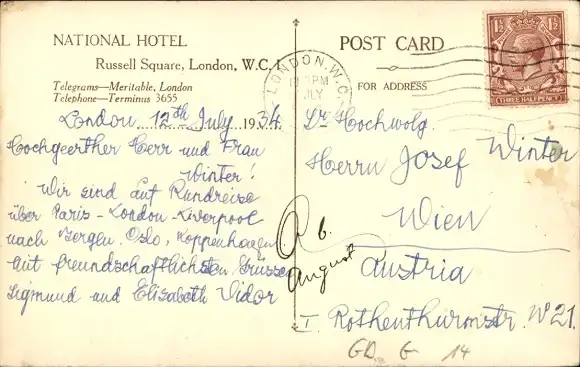 NATIONAL HOTEL
Russell Square, London, W.C.1.
Telegrams—Meritable, London
Telephone—Terminus 3655
London, 12th July 1934
Hochgeerther Herr und Frau
Winter!
Wir sind auf Rundreise
über Paris - London - Liverpool
nach Bergen, Oslo, Koppenhagen
mit freundschaftlichsten Grüssen
Sigmund und Elisabeth Vidor
POST CARD
FOR ADDRESS
LONDON. W.C.
PM
JLY
1½ 1½
THREE HALFPENCE
Sr Hochwolg.
Herrn Josef Winter
Wien
Austria
I. Rothenthurmstr. No 21.
R 6.
August
GD G 14